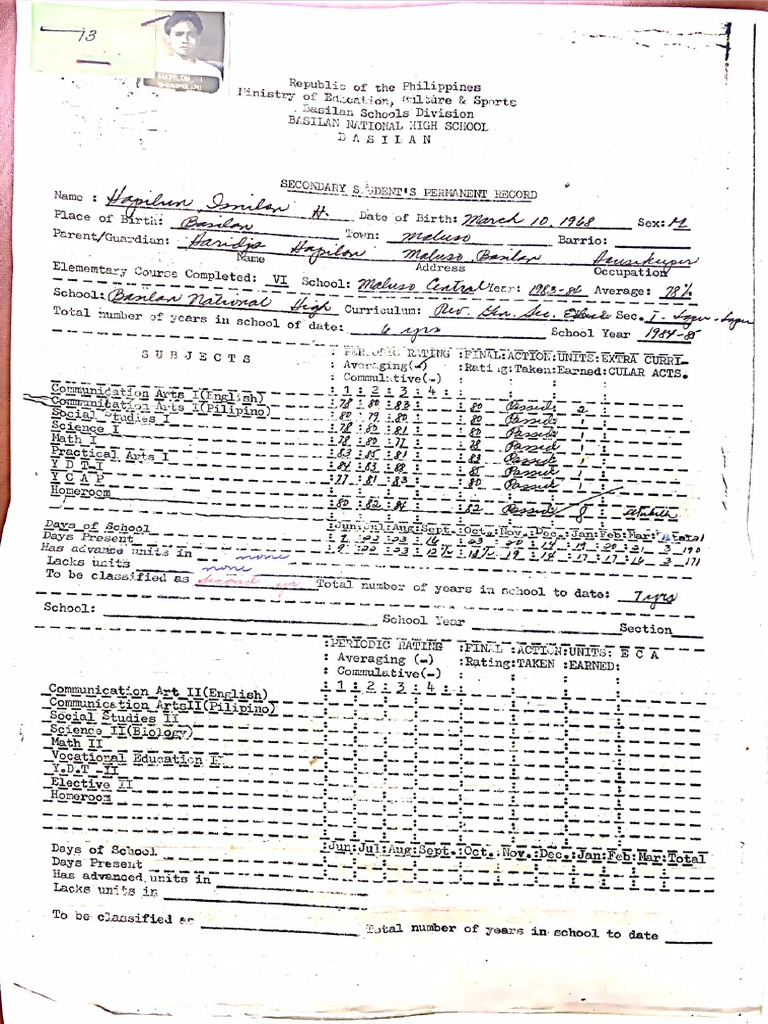 13
Republic of the Philippines
Ministry of Education, Culture & Sports
Basilan Schools Division
BASILAN NATIONAL HIGH SCHOOL
B A S I L A N
SECONDARY STUDENT'S PERMANENT RECORD
Name : Hapilon, Isnilon H. Date of Birth: March 10, 1968 Sex: M
Place of Birth: Basilan Town: Maluso Barrio:
Parent/Guardian: Haridja Hapilon Maluso, Basilan Housekeeper
Name Address Occupation
Elementary Course Completed: VI School: Maluso Central Year: 1983-84 Average: 78%
School: Basilan National High Curriculum: Rev. Gen. Sec. Sec. I -
Total number of years in school of date: 6 yrs School Year 1984-85
S U B J E C T S :PERIODIC RATING :FINAL:ACTION:UNITS:EXTRA CURRI-
: Averaging(-) :Rating:Taken:Earned:CULAR ACTS.
: Commulative(-)
: 1 : 2 : 3 : 4 :
Communication Arts I(English) 78 80 83 80 Passed 2
Communication Arts I(Pilipino) 80 79 80 80 Passed 1
Social Studies I 78 80 81 80 Passed 1
Science I 78 80 77 78 Passed 1
Math I 83 85 81 83 Passed 1
Practical Arts I 84 83 88 85 Passed 1
Y D T-I 77 81 83 80 Passed 1
Y C A P
Homeroom 80 82 84 82 Passed 8
Days of School :Jun:Jul:Aug:Sept.:Oct.:Nov.:Dec.:Jan:Feb:Mar: Total
Days Present 190
Has advance units in none 171
Lacks units none
To be classified as second yr Total number of years in school to date: 7 yrs
School: School Year Section
:PERIODIC RATING :FINAL :ACTION:UNITS: E C A
: Averaging (-) :Rating:TAKEN :EARNED:
: Commulative(-)
: 1 : 2 : 3 : 4 :
Communication Art II(English)
Communication ArtsII(Pilipino)
Social Studies II
Science II(Biology)
Math II
Vocational Education II
Y.D.T II
Elective II
Homeroom
Days of School :Jun:Jul:Aug:Sept.:Oct.:Nov.:Dec.:Jan:Feb:Mar:Total
Days Present
Has advanced units in
Lacks units in
To be classified as Total number of years in school to date